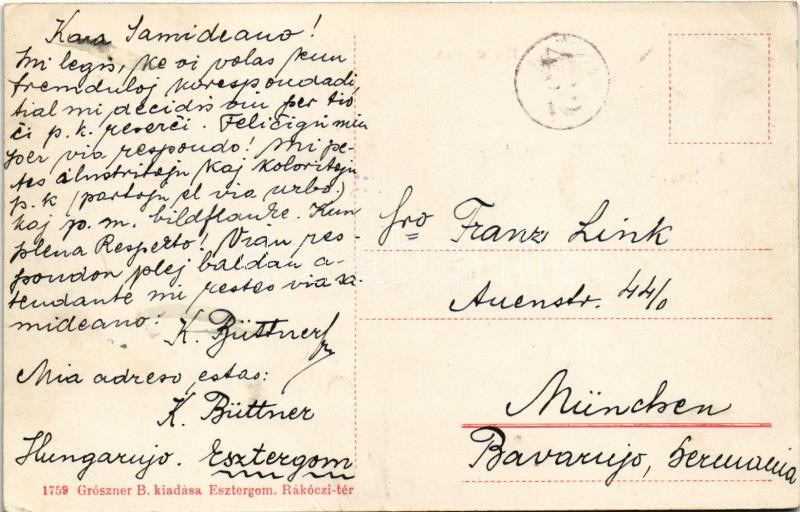 Kara Samideano!
Mi legis, ke vi volas kun
fremduloj korespondadi,
tial mi decidis vin per tio
ĉi p. k. reserĉi. Feliĉigu min
per via respondo! Mi pe-
tas ilustritajn kaj koloritajn
p. k. (partojn el via urbo)
kaj p. m. bildflanke. Kun
plena Respekto! Vian res-
pondon plej baldaŭ a-
tendante mi restas via sa-
mideano:
K. Büttner
Mia adreso estas:
K. Büttner
Hungarujo. Esztergom
1759 Grószner B. kiadása Esztergom. Rákóczi-tér
Sro Franz Link
Auenstr. 44/0
München
Bavarujo, Germania